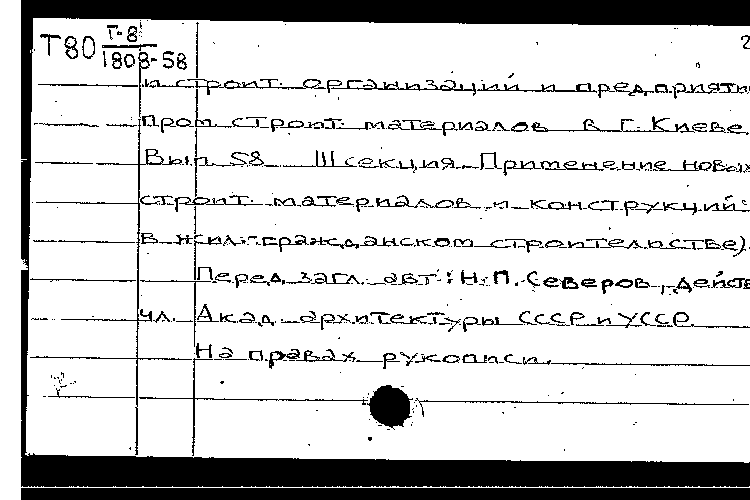 Т80 Т-8 2
1808-58
и строит. организаций и предприяти
пром строит. материалов в г. Киеве
Вып. 58 III секция. Применение новых
строит. материалов и конструкций
в жил.-гражданском строительстве).
Перед загл. авт: Н.П. Северов, действ
чл. Акад. архитектуры СССР и УССР.
На правах рукописи.